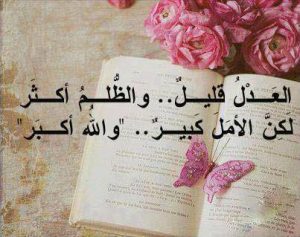 العَدْلُ قَليلٌ.. والظُّلمُ أكثَرَ
لَكِنَّ الأمَل كَبيرٌ.. "واللهُ أكبَر"